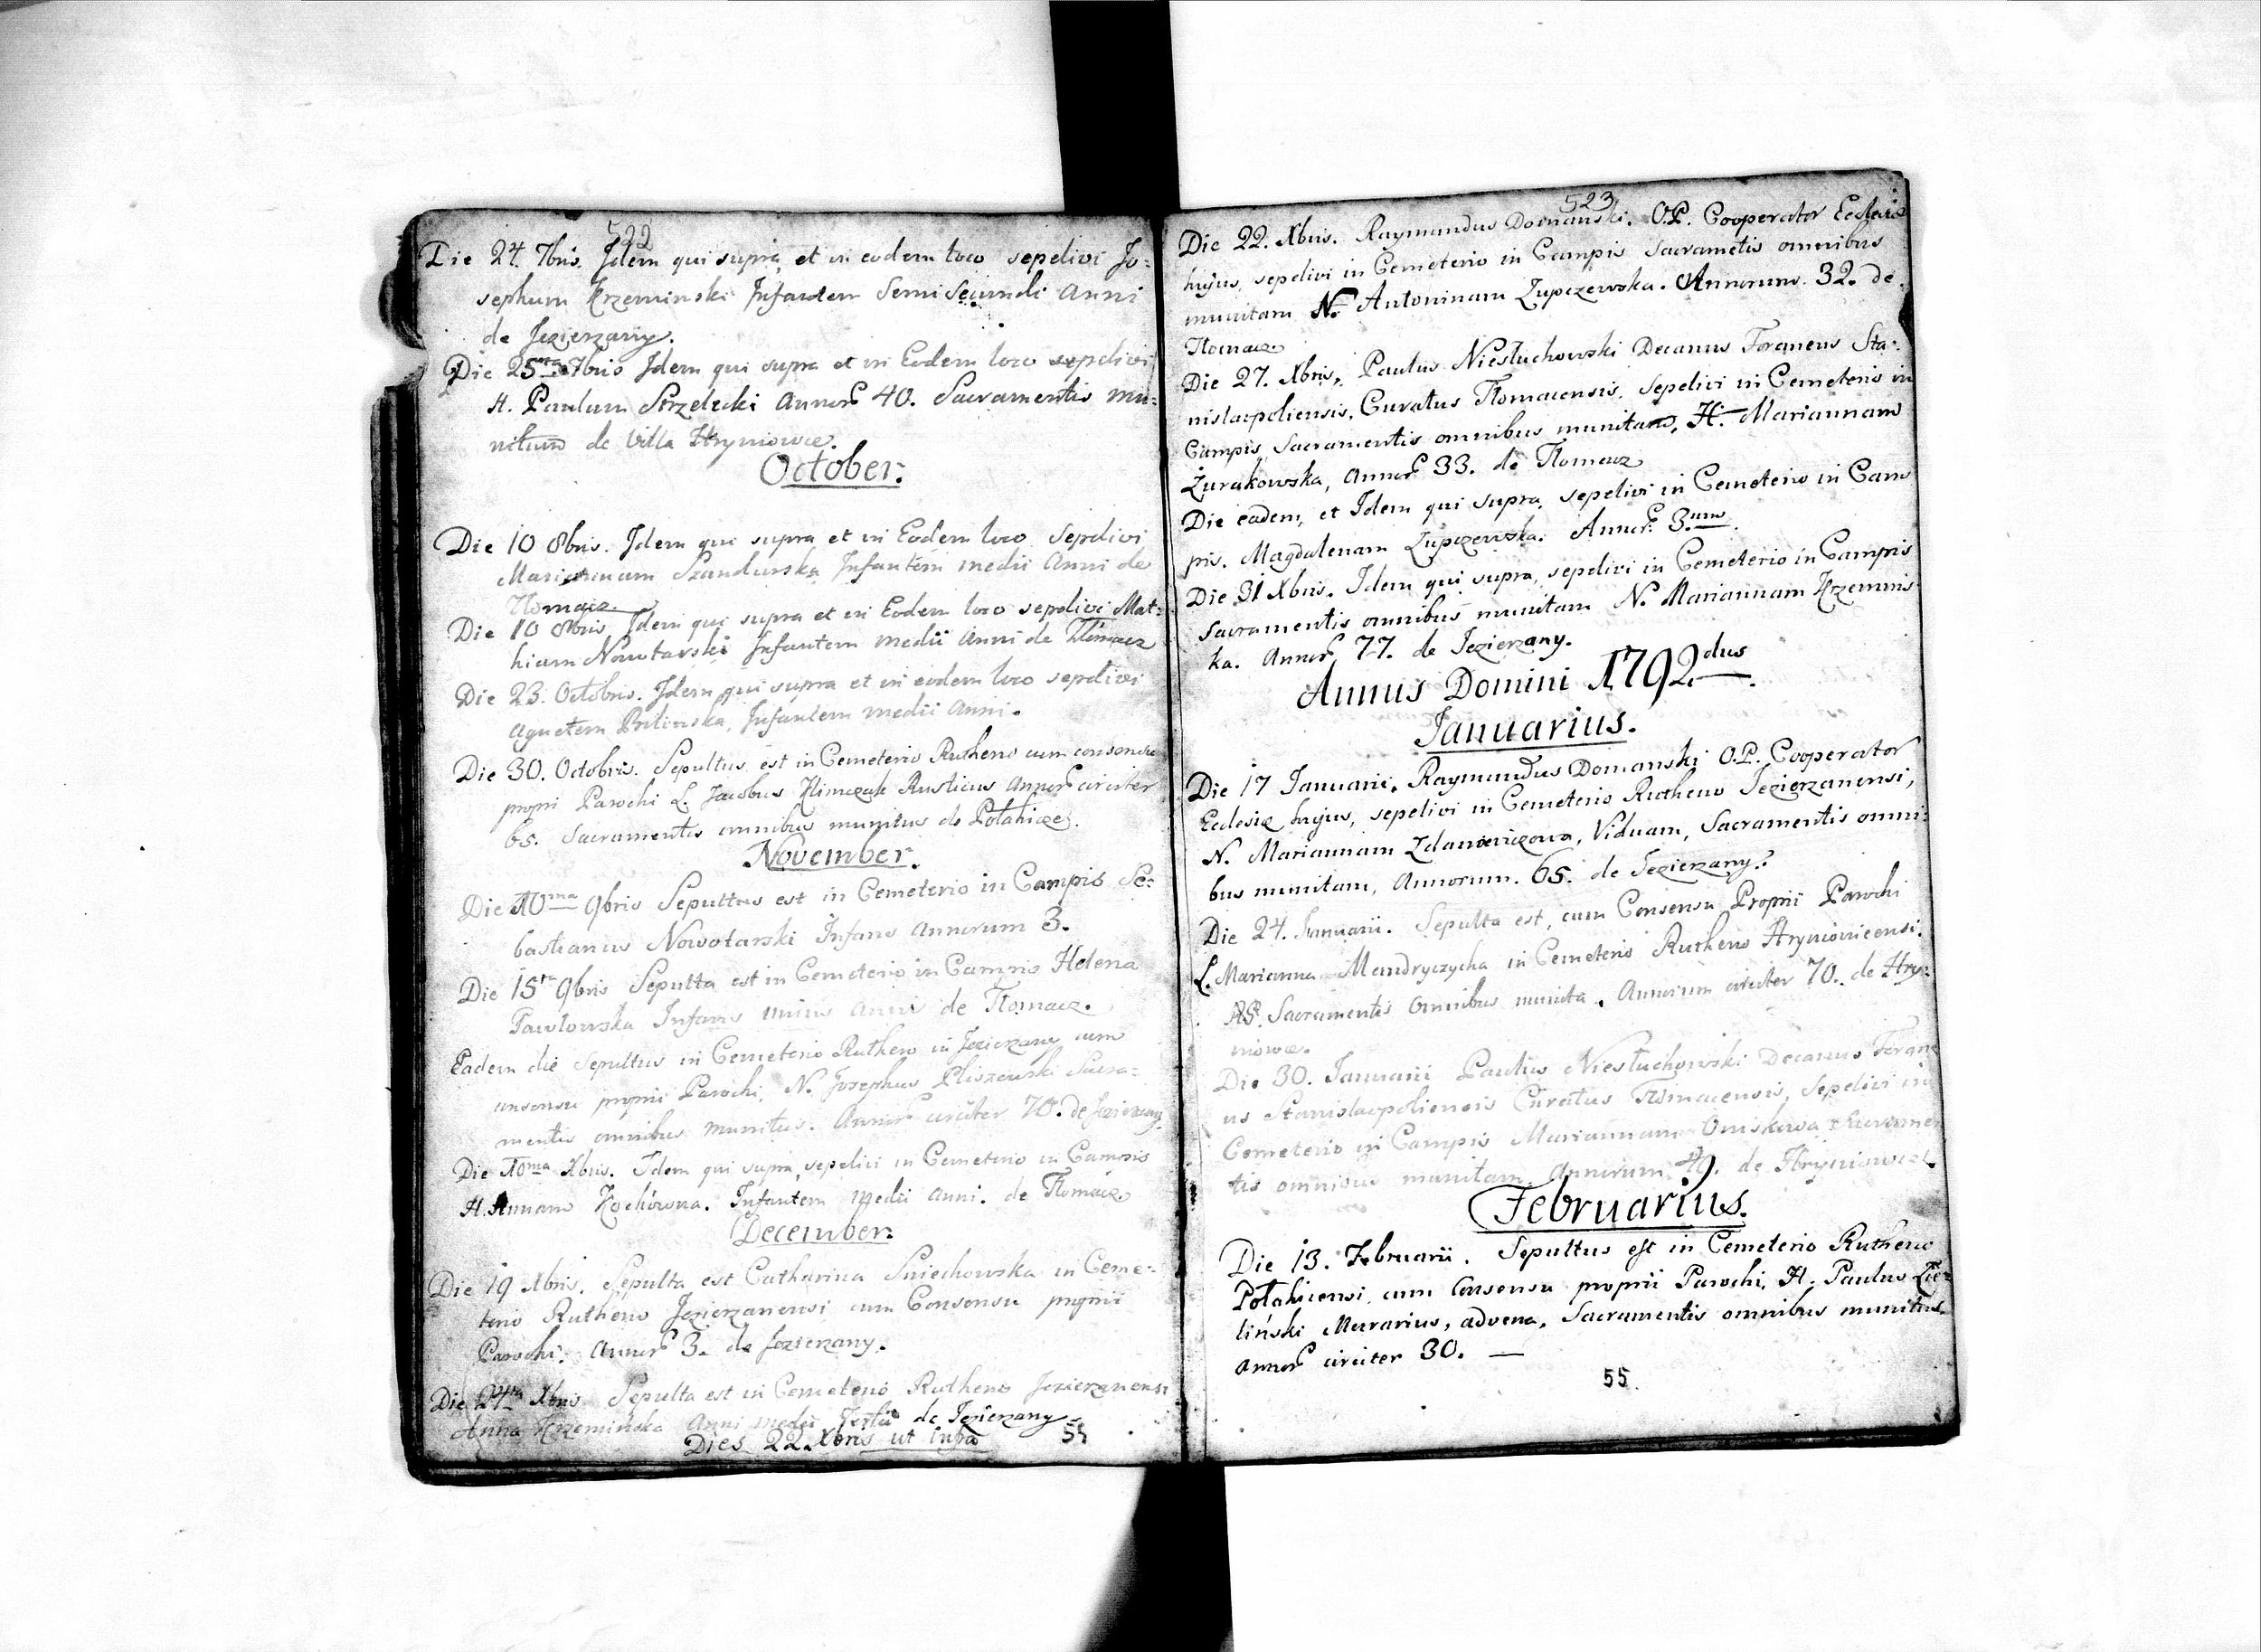 522
Die 24. 7bris. Idem qui supra et in eodem loco sepelivi Jo:
sephum Krzeminski Infantem Semi Secundi Anni
de Jezierzany.
Die 25ta 7bris Idem qui supra et in Eodem loco sepelivi
H. Paulum Strzelecki Annor 40. Sacramentis mu:
nitum de Villa Hryniowce.
October.
Die 10 8bris. Idem qui supra et in Eodem loco Sepelivi
Mariannam Szandurska Infantem medii Anni de
Tlomacz
Die 10 8bris Idem qui supra et in Eodem loco sepelivi Mat:
hiam Nowotarski Infantem medii Anni de Tlomacz
Die 23. Octobris. Idem qui supra et in eodem loco sepelivi
Agnetem Infantem medii Anni.
Die 30. Octobris. Sepultus est in Cemeterio Rutheno cum consensu
proprii Parochi L. Jacobus Klimczak Rusticus Annor circiter
65. Sacramentis omnibus munitus de Połahicze.
November.
Die 10ma 9bris Sepultus est in Cemeterio in Campis Se:
bastianus Nowotarski Infans Annorum 3.
Die 15ta 9bris Sepulta est in Cemeterio in Campis Helena
Pawlowska Infans unius anni de Tlomacz.
Eadem die Sepultus in Cemeterio Rutheno in Jezierzany cum
consensu proprii Parochi, N. Josephus Pliszewski Sacra:
mentis omnibus munitus. Annor circiter 70. de Jezierzany
Die 10ma Xbris. Idem qui supra, sepelivi in Cemeterio in Campis
H. Annam Kochówna. Infantem medii Anni. de Tlomacz
December.
Die 19 Xbris. Sepulta est Catharina Sniechowska in Ceme:
terio Rutheno Jezierzanensi cum Consensu proprii
Parochi. Annor 3. de Jezierzany.
Die 24ta Xbris Sepulta est in Cemeterio Rutheno Jezierzanensi
Anna Krzemińska Anni medii de Jezierzany
Dies 22. Xbris ut infra
523
Die 22. Xbris. Raymundus Domanski. O.P. Cooperator Ecclesiæ
hujus, sepelivi in Cemeterio in Campis Sacrametis omnibus
munitam N. Antoninam Zupczewska. Annorum. 32. de
Tlomacz
Die 27. Xbris, Paulus Niesłuchowski Decanus Foraneus Sta:
nislaopoliensis, Curatus Tlomacensis, Sepelivi in Cemeterio in
Campis, Sacramentis omnibus munitam, H. Mariannam
Żurakowska, Annor 33. de Tlomacz
Die eadem, et Idem qui supra, sepelivi in Cemeterio in Cam
pis. Magdalenam Zupczewska. Annor. 3.um
Die 31 Xbris. Idem qui supra, sepelivi in Cemeterio in Campis
Sacramentis omnibus munitam N. Mariannam Krzemins
ka. Annor 77. de Jezierzany.
Annus Domini 1792.dus
Januarius.
Die 17 Januarii. Raymundus Domanski O.P. Cooperator
Ecclesiæ hujus, sepelivi in Cemeterio Rutheno Jezierzanensi,
N. Mariannam Zdanowiczowa, Viduam, Sacramentis omni:
bus munitam, Annorum. 65. de Jezierzany.
Die 24. Januarii. Sepulta est, cum Consensu Proprii Parochi
L. Marianna Mandryczycha in Cemeterio Rutheno Hryniowicensi.
Sacramentis Omnibus munita. Annorum circiter 70. de Hry:
niowce.
Die 30. Januarii Paulus Niesłuchowski Decanus Forane
us Stanislaopoliensis Curatus Tlomacensis, Sepelivi in
Cemeterio in Campis Mariannam Sacramen
tis omnibus munitam, Annorum 49. de Hryniowce.
Februarius.
Die 13. Februarii. Sepultus est in Cemeterio Rutheno
Połahicensi, cum Consensu proprii Parochi, H. Paulus Zie:
liński Murarius, advena, Sacramentis omnibus munitus.
Annor circiter 30. —
55.